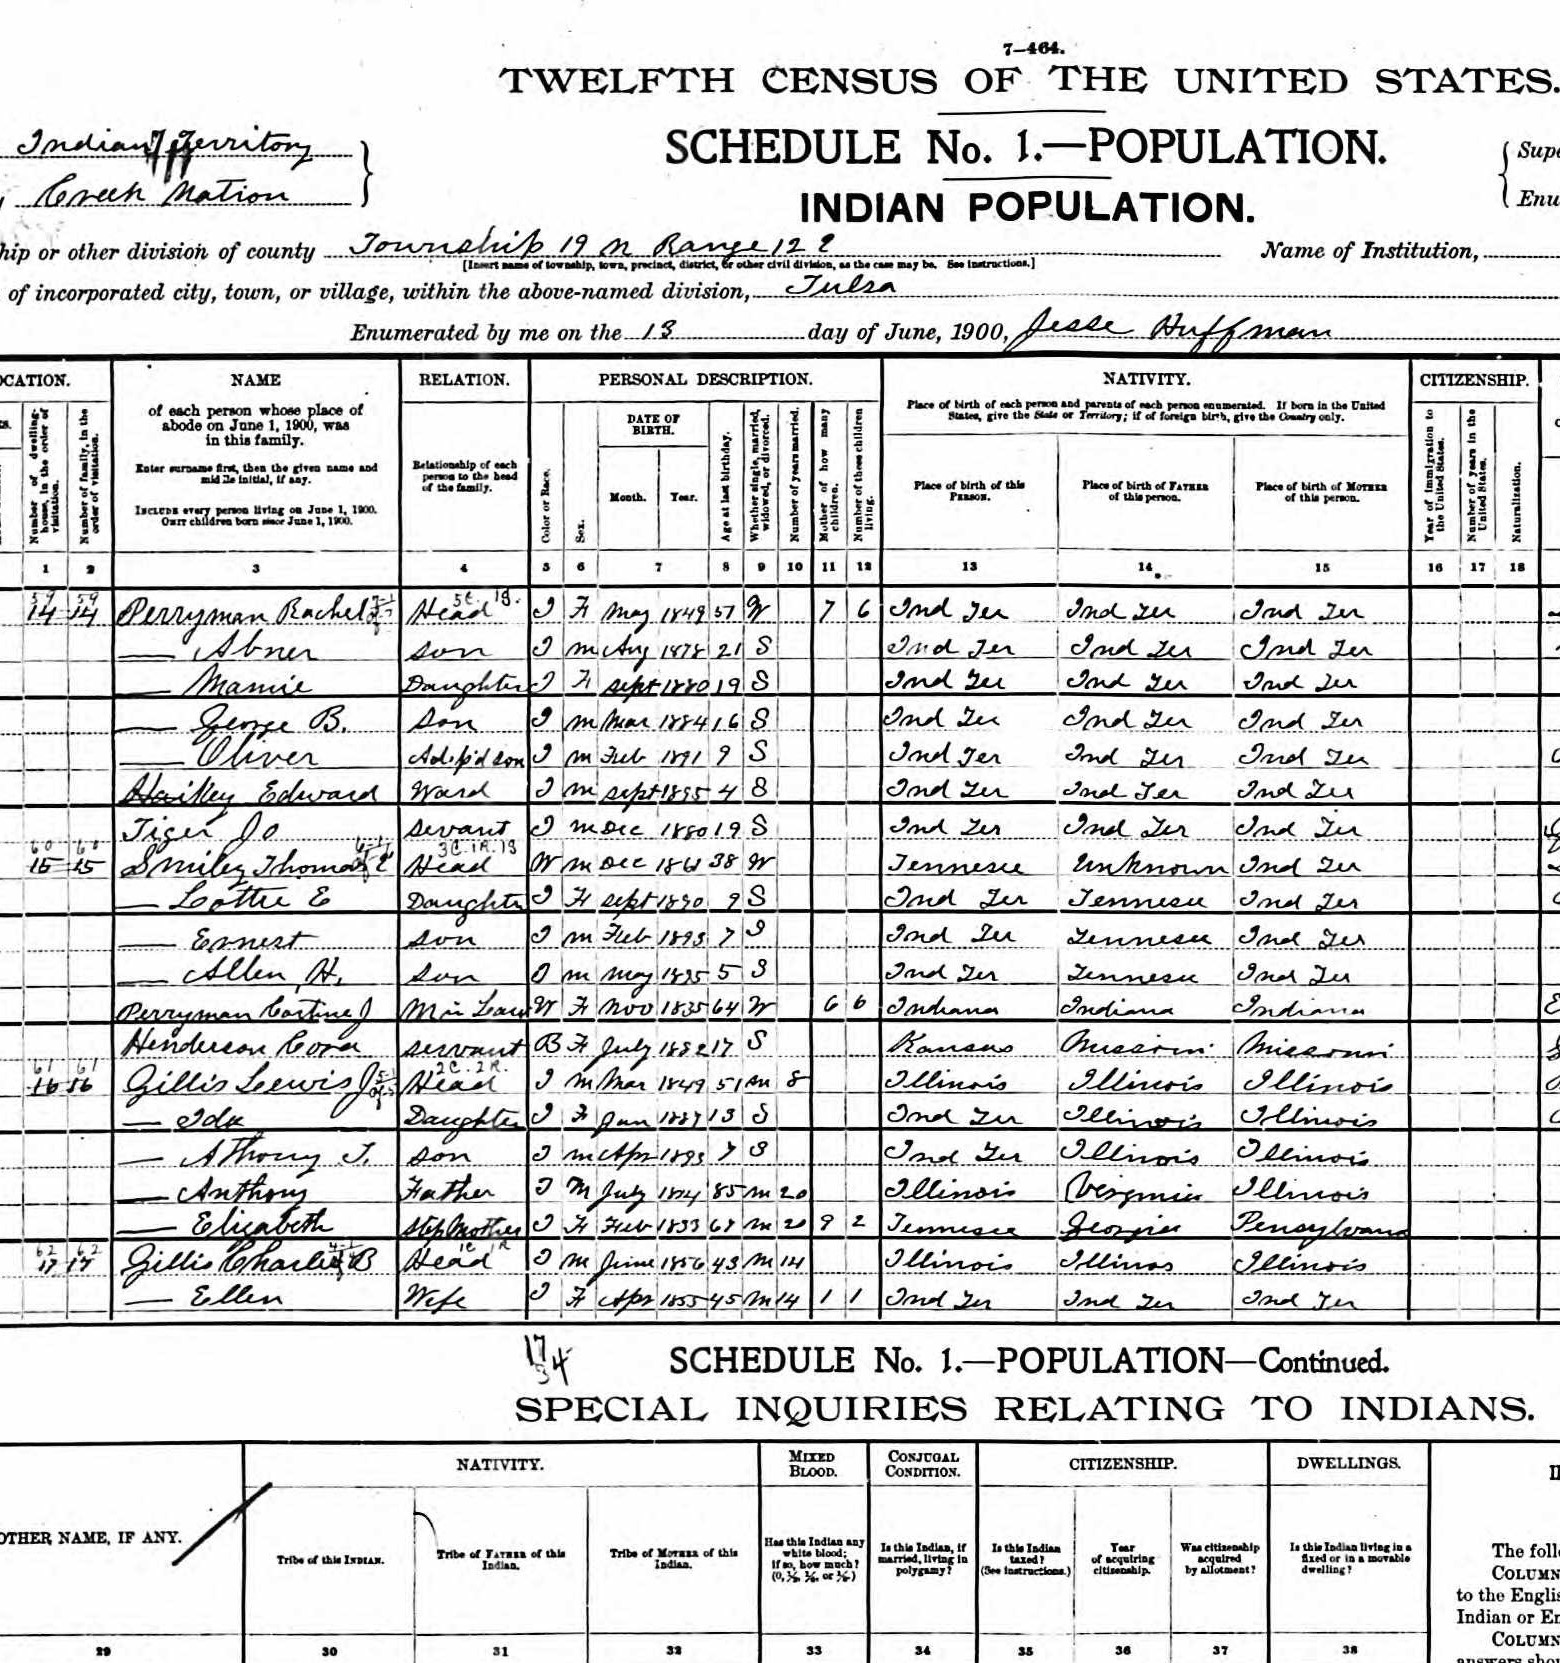 7—464.
TWELFTH CENSUS OF THE UNITED STATES.
Indian Territory
SCHEDULE No. 1.—POPULATION.
Supe
Creek Nation
INDIAN POPULATION.
Enu
hip or other division of county Township 19 N Range 12 E
Name of Institution,
[Insert name of township, town, precinct, district, or other civil division, as the case may be. See instructions.]
of incorporated city, town, or village, within the above-named division, Tulsa
Enumerated by me on the 13 day of June, 1900, Jesse Huffman
OCATION. NAME RELATION. PERSONAL DESCRIPTION. NATIVITY. CITIZENSHIP.
Number of dwelling-house, in the order of visitation.
Number of family, in the order of visitation.
of each person whose place of abode on June 1, 1900, was in this family.
Enter surname first, then the given name and middle initial, if any.
INCLUDE every person living on June 1, 1900.
OMIT children born since June 1, 1900.
Relationship of each person to the head of the family.
Color or Race.
Sex.
DATE OF BIRTH.
Month. Year.
Age at last birthday.
Whether single, married, widowed, or divorced.
Number of years married.
Mother of how many children.
Number of these children living.
Place of birth of each person and parents of each person enumerated. If born in the United States, give the State or Territory; if of foreign birth, give the Country only.
Place of birth of this PERSON.
Place of birth of FATHER of this person.
Place of birth of MOTHER of this person.
Year of immigration to the United States.
Number of years in the United States.
Naturalization.
1 2 3 4 5 6 7 8 9 10 11 12 13 14 15 16 17 18
59 59 5C. 1S.
14 14 Perryman Rachel Head I F May 1849 51 W 7 6 Ind Ter Ind Ter Ind Ter
— Abner Son I M Aug 1878 21 S Ind Ter Ind Ter Ind Ter
— Mamie Daughter I F Sept 1880 19 S Ind Ter Ind Ter Ind Ter
— George B. Son I M Mar 1884 16 S Ind Ter Ind Ter Ind Ter
— Oliver Adop'd son I M Feb 1891 9 S Ind Ter Ind Ter Ind Ter
Hailey Edward Ward I M Sept 1895 4 S Ind Ter Ind Ter Ind Ter
Tiger Jo servant I M Dec 1880 19 S Ind Ter Ind Ter Ind Ter
60 60 3C. 1R. 1S
15 15 Smiley Thomas E Head W M Dec 1861 38 W Tennesee Unknown Ind Ter
— Lottie E Daughter I F Sept 1890 9 S Ind Ter Tennesee Ind Ter
— Ernest Son I M Feb 1893 7 S Ind Ter Tennesee Ind Ter
— Allen H. Son I M May 1895 5 S Ind Ter Tennesee Ind Ter
Perryman J W F Nov 1835 64 W 6 6 Indiana Indiana Indiana
Henderson Cora servant B F July 1882 17 S Kansas Missouri Missouri
61 61 2C. 2R.
16 16 Gillis Lewis J Head I M Mar 1849 51 M 8 Illinois Illinois Illinois
— Ida Daughter I F Jan 1887 13 S Ind Ter Illinois Illinois
— Athony T. Son I M Apr 1893 7 S Ind Ter Illinois Illinois
— Anthony Father I M July 85 M 20 Illinois Virginia Illinois
— Elizabeth Step Mother I F Feb 1833 M 20 9 2 Tennesee Georgia Pensylvana
62 62 1C 1R
17 17 Gillis Charlie B Head I M June 1856 43 M 14 Illinois Illinos Illinois
— Ellen Wife I F Apr 1855 45 M 14 1 1 Ind Ter Ind Ter Ind Ter
17
34
SCHEDULE No. 1.—POPULATION—Continued.
SPECIAL INQUIRIES RELATING TO INDIANS.
NATIVITY. MIXED BLOOD. CONJUGAL CONDITION. CITIZENSHIP. DWELLINGS.
OTHER NAME, IF ANY.
Tribe of this INDIAN.
Tribe of FATHER of this Indian.
Tribe of MOTHER of this Indian.
Has this Indian any white blood; if so, how much?
Is this Indian, if married, living in polygamy?
Is this Indian taxed? (See instructions.)
Year of acquiring citizenship.
Was citizenship acquired by allotment?
Is this Indian living in a fixed or in a movable dwelling?
The follo
COLUMN
to the Englis
Indian or En
COLUMN
answers shou
29 30 31 32 33 34 35 36 37 38